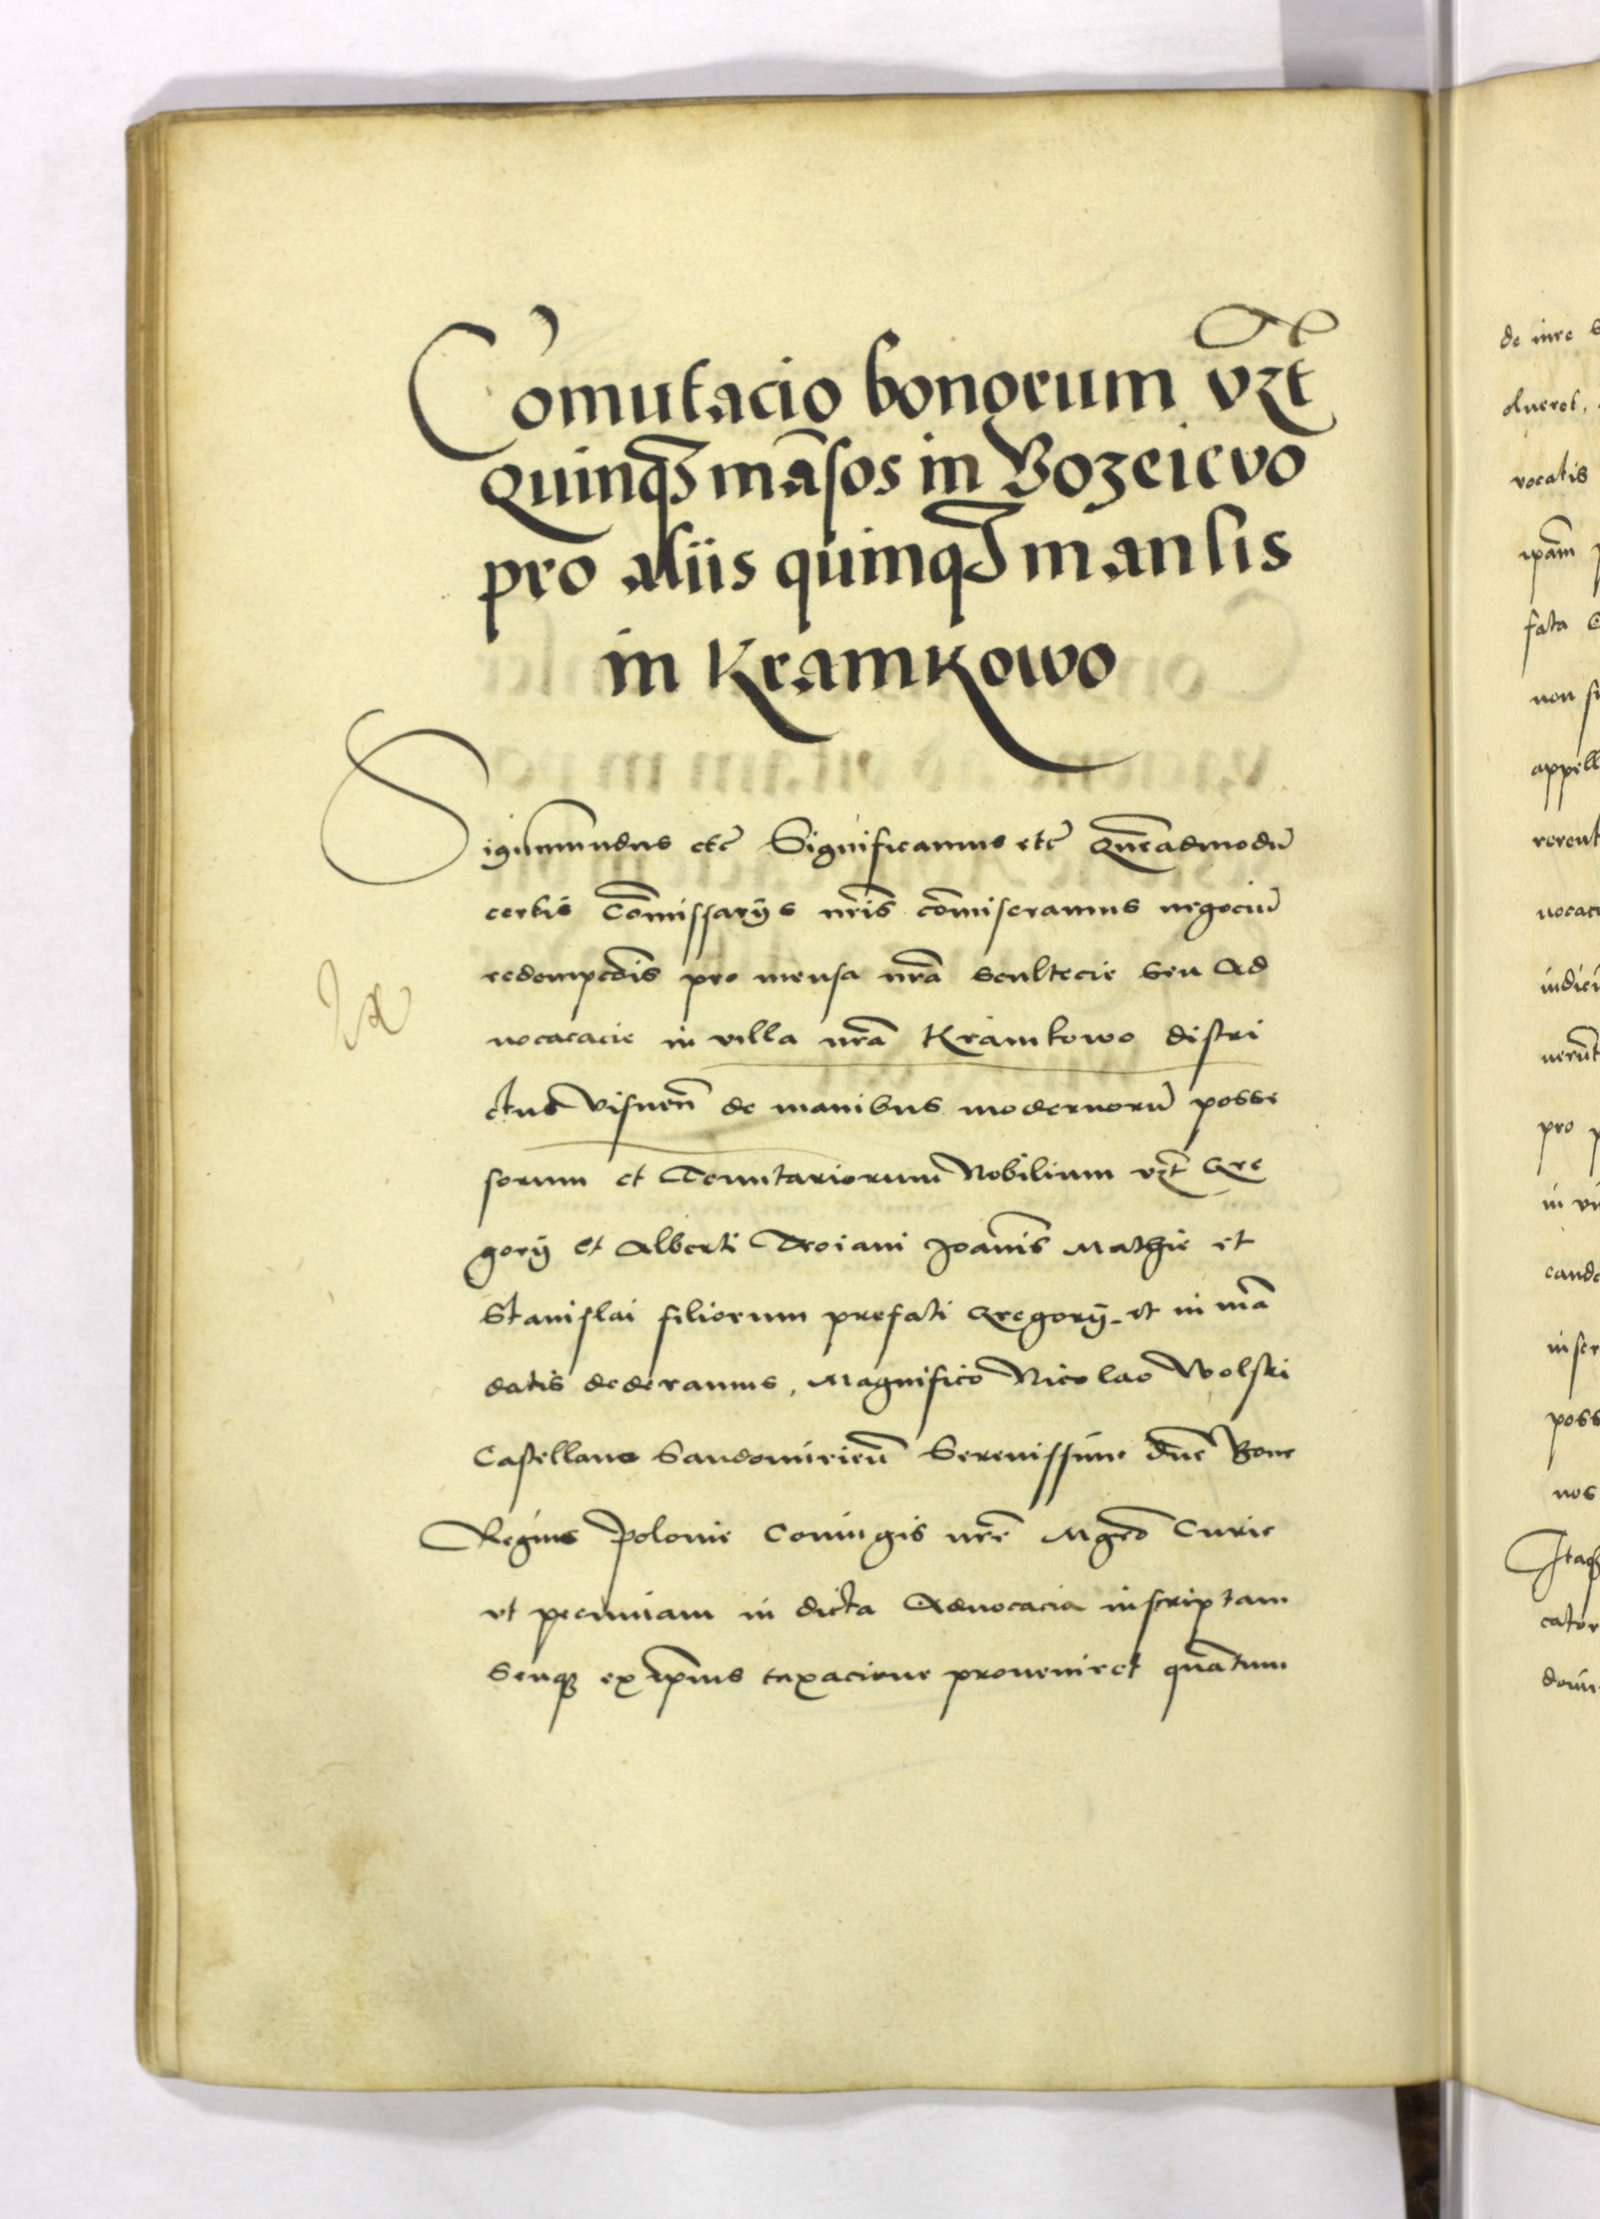 Comutacio bonorum vzt
quinqȝ mãsos in Bozeievo
pro aliis quinqȝ mansis
in Kramkowo
Sigismundus etc̃ Significamus etc̃ Quẽadmodũ
certis Cõmissarÿs nr̃is cõmiseramus negociũ
redempcõis pro mensa nr̃a scultecie seu Ad
uocacacie in villa nr̃a Kramkowo distri
ctus Visnen̄ de manibus modernorũ posse
sorum et Tenutariorum Nobilium vzt̃ Gre
gorÿ et Alberti Troiani Joãnis Mathie et
Stanislai filiorum prefati Gregorÿ et in mã
datis dederamus, Magnifico Nicolao Wolski
Castellano Sandomirien̄ Serenissime dñe Bone
Regine Polonie Coniugis nr̃e Mgr̃o Curie
vt pecuniam in dicta Aduocacia inscriptam
Seuqȝ ex ip̃ius taxacione proueniret quãtum
de iure
vocatis
ip̃am
fata
non
appell
rerent
indici
uerũt
pro
in
cand
inser
poss
nos
Itaqȝ
cator